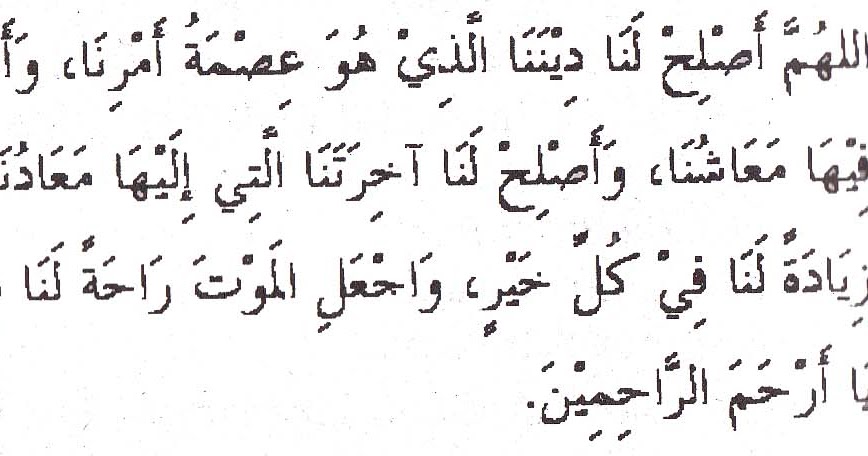 اللهُمَّ أَصْلِحْ لَنَا دِيْنَنَا الَّذِيْ هُوَ عِصْمَةُ أَمْرِنَا، وَأَ
فِيْهَا مَعَاشُنَا، وَأَصْلِحْ لَنَا آخِرَتَنَا الَّتِي إِلَيْهَا مَعَادُنَا
زِيَادَةً لَنَا فِيْ كُلِّ خَيْرٍ، وَاجْعَلِ الْمَوْتَ رَاحَةً لَنَا
يَا أَرْحَمَ الرَّاحِمِيْنَ.